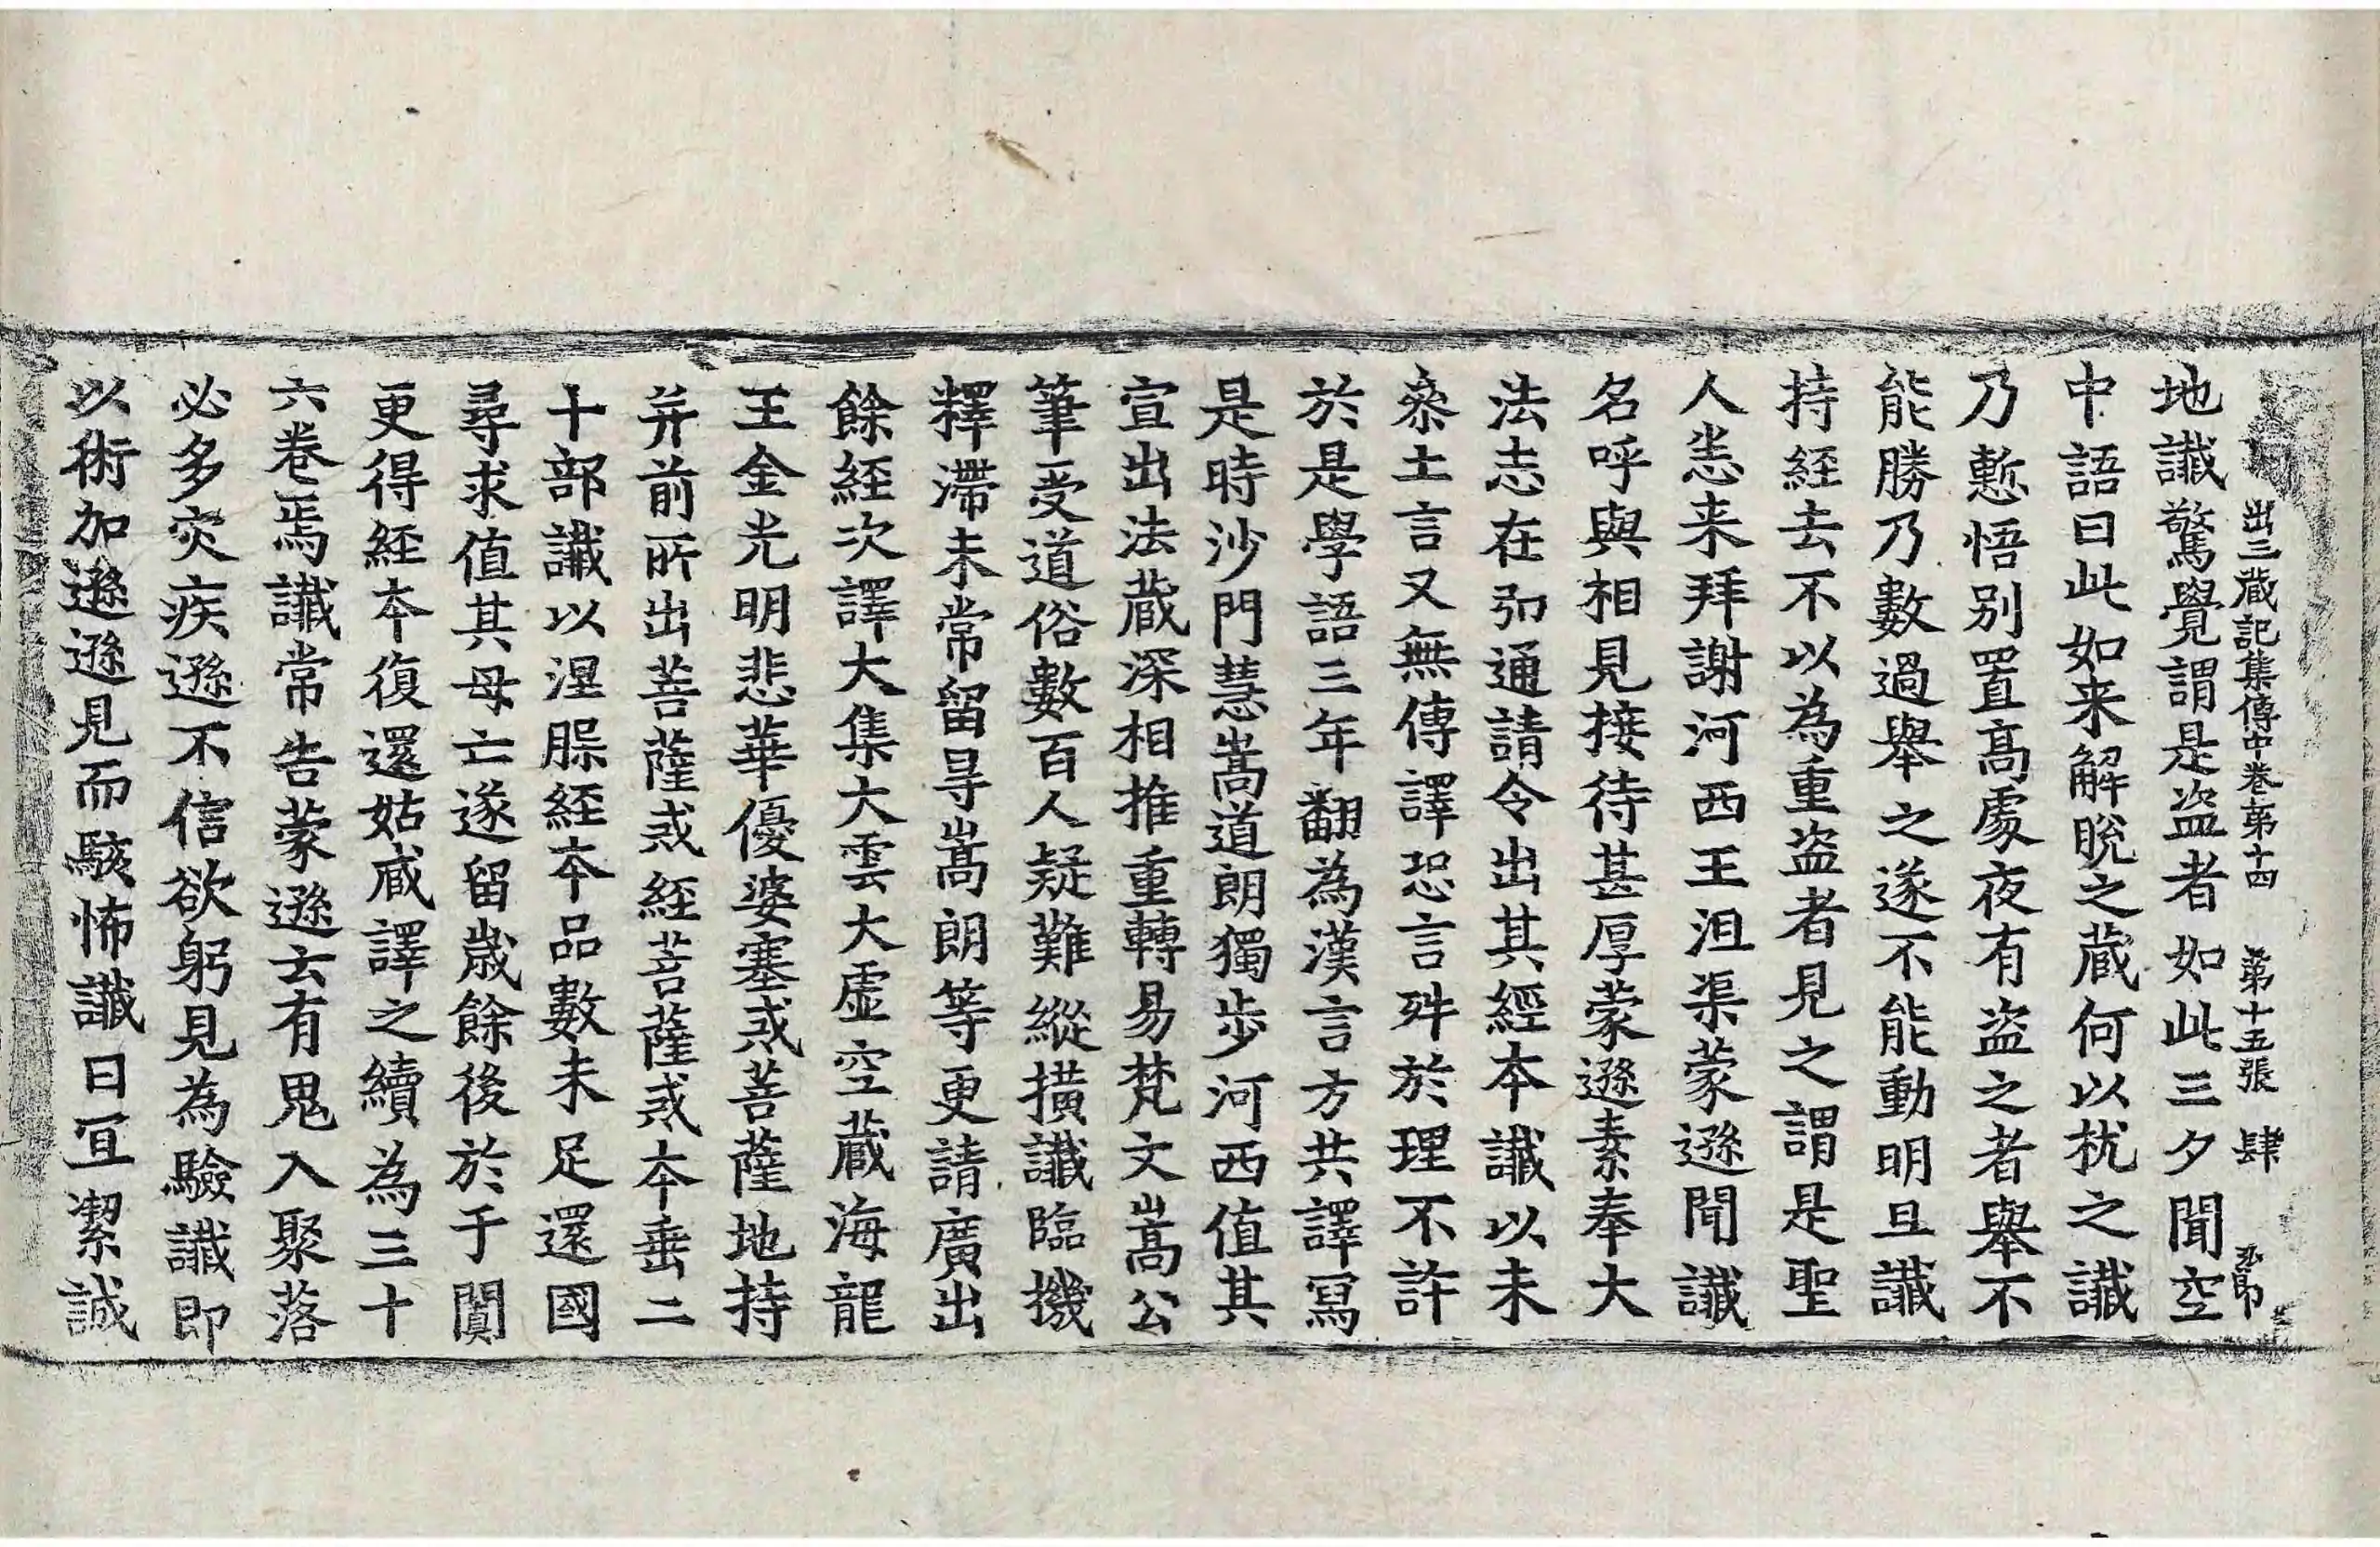 出三藏記集傳中卷第十四 第十五張 肆
地讖驚覺謂是盗者如此三夕聞空
中語曰此如来解脫之藏何以枕之讖
乃慙悟别置髙處夜有盗之者舉不
能勝乃數過舉之遂不能動明旦讖
持經去不以為重盗者見之謂是聖
人悉来拜謝河西王沮渠蒙遜聞讖
名呼與相見接待甚厚蒙遜素奉大
法志在弘通請令出其經本讖以未
叅土言又無傳譯恐言舛於理不許
於是學語三年翻為漢言方共譯寫
是時沙門慧嵩道朗獨步河西值其
宣出法藏深相推重轉易梵文嵩公
筆受道俗數百人疑難縱橫讖臨機
釋滯未常留㝵嵩朗等更請廣出
餘經次譯大集大雲大虚空藏海龍
王金光明悲華優婆塞戒菩薩地持
并前所出菩薩戒經菩薩戒本垂二
十部讖以涅脲經本品數未足還國
尋求值其母亡遂留歲餘後於于闐
更得經本復還姑臧譯之續為三十
六卷焉讖常告蒙遜云有鬼入聚落
必多灾疾遜不信欲躬見為驗讖即
以術加遜遜見而駭怖讖曰宜潔誠